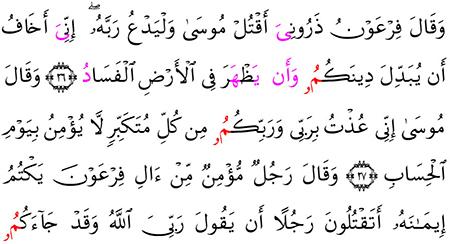 وَقَالَ فِرْعَوْنُ ذَرُونِيَ أَقْتُلْ مُوسَىٰ وَلْيَدْعُ رَبَّهُۥٓ ۖ إِنِّيَ أَخَافُ
أَن يُبَدِّلَ دِينَكُمُۥ وَأَن يَظْهَرَ فِى ٱلْأَرْضِ ٱلْفَسَادُ ﴿٢٦﴾ وَقَالَ
مُوسَىٰ إِنِّى عُذْتُ بِرَبِّى وَرَبِّكُمُۥ مِن كُلِّ مُتَكَبِّرٍ لَّا يُؤْمِنُ بِيَوْمِ
ٱلْحِسَابِ ﴿٢٧﴾ وَقَالَ رَجُلٌ مُّؤْمِنٌ مِّنْ ءَالِ فِرْعَوْنَ يَكْتُمُ
إِيمَـٰنَهُۥٓ أَتَقْتُلُونَ رَجُلًا أَن يَقُولَ رَبِّىَ ٱللَّهُ وَقَدْ جَآءَكُمُۥ